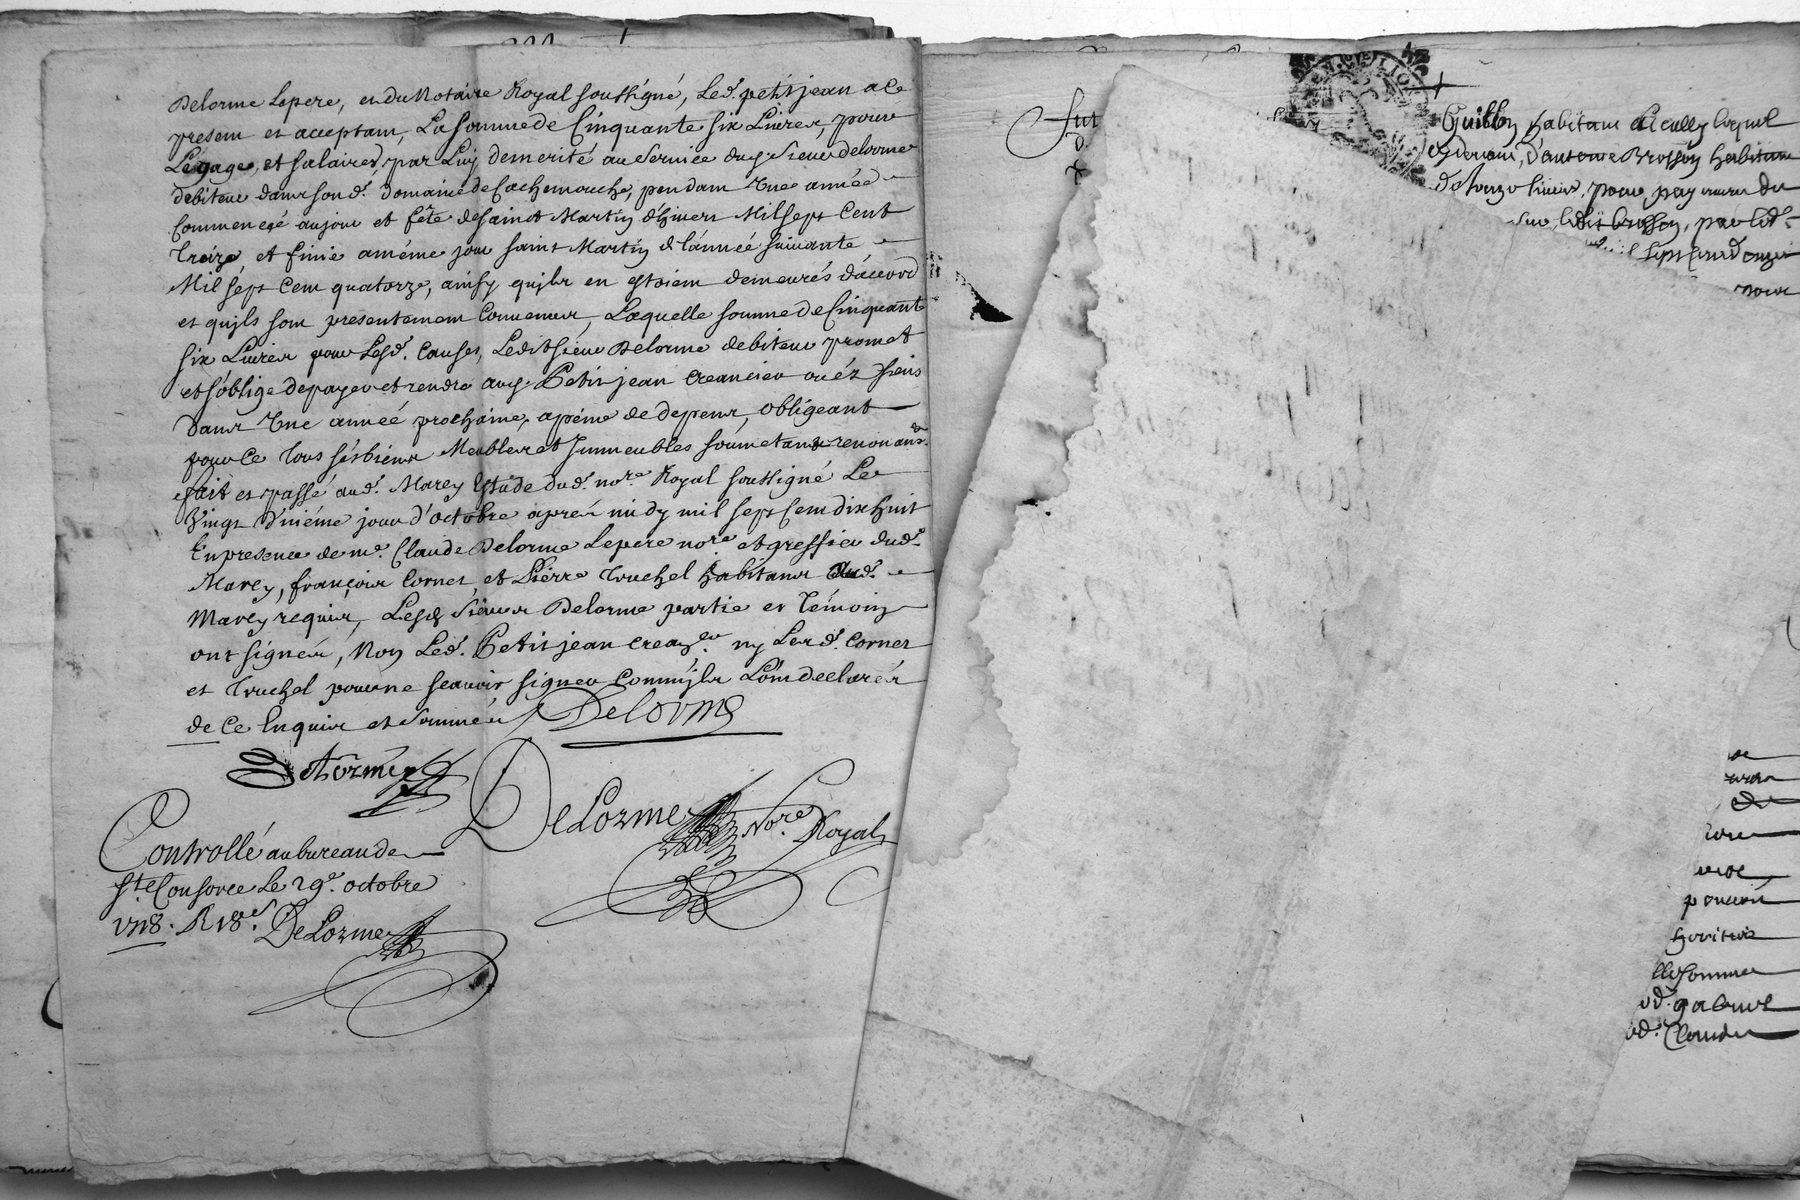 Delorme Lepere, et du Notaire Royal soussigné, Led. petitjean a ce
present et acceptant, La somme de Cinquante six Livres, pour
Le gage, et salaires, par Luy demerité au service dud. Sieur delorme
debiteur dans sond. domaine de Cachenouche, pendant Une année
Commencée au jour et fête de saint Martin d'hivers Mil sept Cent
treize, et finie a même jour saint Martin de l'année suivante
Mil sept Cent quatorze, ainsy quils en estoient demeurés d'accord
et quils sont presentement Convenus, Laquelle somme de Cinquante
six Livres pour Lesd. Causes, Ledit sieur Delorme debiteur promet
et s'oblige de payer et rendre aud. Petitjean Creancier ou éz siens
Dans Une année prochaine, a péine de depens, obligeant
pour Ce tous sés biens Meubles et Immeubles soumetant renonant
fait et passé aud. Marcy Estude dud. nore. Royal soussigné Le
Vingt iéme jour d'octobre aprés midy mil sept Cent dix huit
En presence de me. Claude Delorme Lepere nore. et greffier dud.
Marcy, françois Cornet, et Pierre truchet habitans dud.
Marcy requis, Lesd. Sieurs Delorme partie et témoin
ont signés, Non Led. Petitjean crean.er ny Lesd. Cornet
et truchet pour ne scavoir signer Comm'ils L'ont declarés
de Ce Enquis et sommés Delorme
Delorme
DeLorme Nore. Royal
Controllé au bureau de
Ste Consorce Le 29e. octobre
1718. R 18s. DeLorme
Guillon habitant
d'antoine Brosson habitant
pour
sur ledit brosson, par led.
sept cent onze
pour
heritiers
somme
ud. gabriel
ud. Claude